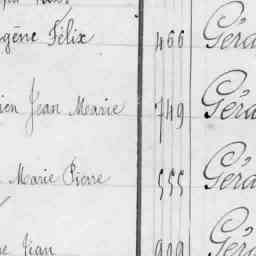 gène Félix 466 Géra
ien Jean Marie 749 Géra
Marie Pierre 555 Géra
Jean 929 Géra